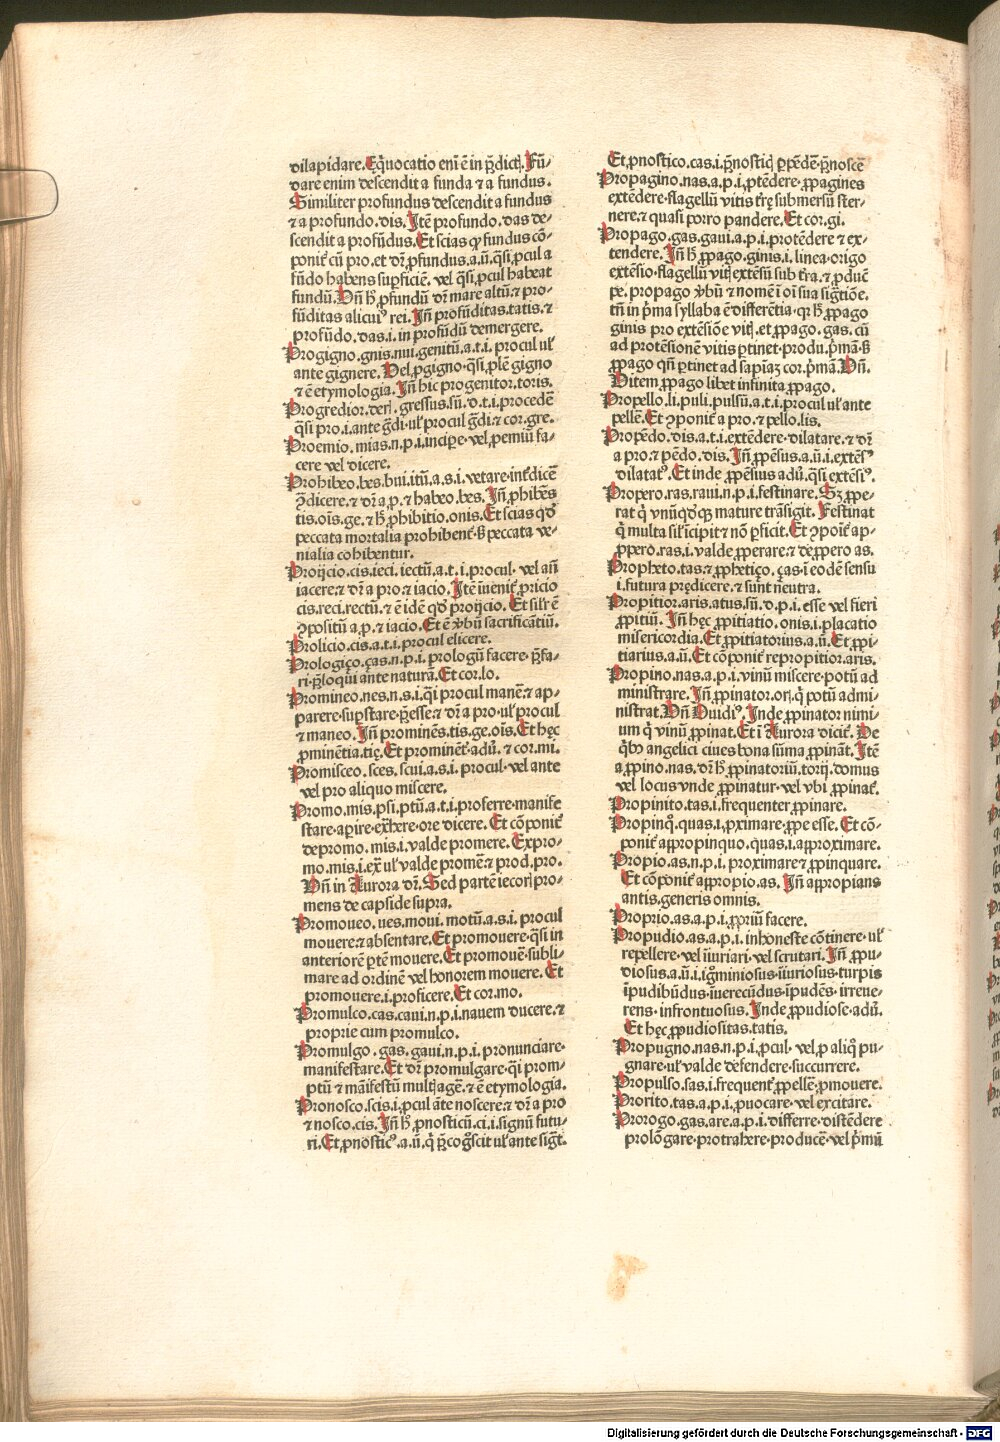 dilapidare. Eq̃uocatio eni ē in p̄dictꝭ. Fū-
dare enim descendit a funda ⁊ a fundus.
Similiter profundus descendit a fundus
⁊ a profundo. dis. Itē profundo. das de-
scendit a profūdus. Et scias ꝙ fundus cō-
poniṫ cū pro. et dr̄ ꝓfundus. a. ū. q̄si ꝓcul a
fūdo habens supficiē. vel q̄si ꝓcul habeat
fundū. Dn̄ h̄ ꝓfundū dr̄ mare altū. ⁊ pro-
fūditas alicuiꝰ rei. Jn̄ profūditas. tatis. ⁊
profūdo. das. i. in profūdū demergere.
Progigno. gnis. nui. genitū. a. t. i. procul ul̄
ante gignere. Vel ꝓgigno. q̄si ꝓlē gigno
⁊ ē etymologia. Jn̄ hic progenitor. toris.
Progredior. derꝭ. gressus. sū. d. t. i. procedē
q̄si pro. i. ante gr̄di. ul̄ procul gr̄di. ⁊ cor. gre.
Proemio. mias. n. p. i. incipe. vel ꝓemiū fa-
cere vel dicere.
Prohibeo. bes. bui. itū. a. s. i. vetare. int̄dicē
ꝯ̄dicere. ⁊ dr̄ a. p. ⁊ habeo. bes. Jn̄ ꝓhibēs
tis. ois. ge. ⁊ h̄ ꝓhibitio. onis. Et scias qd̓
peccata mortalia prohibent̄. s̄ peccata ve-
nialia cohibentur.
Proijcio. cis. ieci. iectū. a. t. i. procul. vel an̄
iacere. ⁊ dr̄ a pro. ⁊ iacio. Itē īueniṫ ꝓricio
cis. reci. rectū. ⁊ ē idē qd̓ proijcio. Et sil̄r ē
ꝯpositū a. p. ⁊ iacio. Et ē v̓bū sacrificātiū.
Prolicio. cis. a. t. i. procul elicere.
Prologiço. ças. n. p. i. prologū facere. p̄fa-
ri. p̄loqui ante naturā. Et cor. lo.
Promineo. nes. n. s. i. q̄i procul manē. ⁊ ap-
parere. supstare. p̄esse. ⁊ dr̄ a pro. ul̄ procul
⁊ maneo. Jn̄ prominēs. tis. ge. ois. Et hęc
ꝓminētia. tię. Et prominēt̄. adū. ⁊ cor. mi.
Promisceo. sces. scui. a. s. i. procul. vel ante
vel pro aliquo miscere.
Promo. mis. psi. ptū. a. t. i. proferre. manife
stare. apire. ex̄here. ore dicere. Et cōponiṫ
depromo. mis. i. valde promere. Expro-
mo. mis. i. ex̄ ul̄ valde promē. ⁊ prod. pro.
Dn̄ in Aurora dr̄. Sed partē iecorꝭ pro-
mens de capside supra.
Promoueo. ues. moui. motū. a. s. i. procul
mouere. ⁊ absentare. Et promouere. q̄si in
anteriorē ꝑtē mouere. Et promouē. subli-
mare ad ordinē vel honorem mouere. Et
promouere. i. proficere. Et cor. mo.
Promulco. cas. caui. n. p. i. nauem ducere. ⁊
proprie cum promulco.
Promulgo. gas. gaui. n. p. i. pronunciare.
manifestare. Et dr̄ promulgare. q̄i prom-
ptū ⁊ māifestū multꝭ agē. ⁊ ē etymologia.
Pronosco. scis. i. ꝓcul āte noscere. ⁊ dr̄ a pro
⁊ nosco. cis. Jn̄ h̄ ꝓnosticū. ci. i. signū futu-
ri. Et ꝓnosticꝰ. a. ū. q̓ p̄cogscit ul̄ ante sigt̄.
Et ꝓnostico. cas. i. p̄nosticꝭ p̄pēdē. p̄noscē
Propagino. nas. a. p. i. ꝓtēdere. ꝓpagines
extēdere. flagellū vitis tr̄ę submersū ster-
nere. ⁊ quasi porro pandere. Et cor. gi.
Propago. gas. gaui. a. p. i. protēdere ⁊ ex-
tendere. Jn̄ h̄ ꝓpago. ginis. i. linea. origo
extēsio. flagellū vitꝭ extēsū sub tr̄a. ⁊ ꝓduc̄
pe. propago v̓bū ⁊ nomē ī oī sua sigtiōe.
tn̄ in p̓ma syllaba ē differētia. qr h̄ ꝓpago
ginis pro extēsiōe vitꝭ. et ꝓpago. gas. cū
ad protēsionē vitis ꝑtinet. produ. p̓mā. s̄
ꝓpago qn̄ ꝑtinet ad sapiaꝫ cor. p̓mā. Dn̄.
Ditem ꝓpago libet infinita ꝓpago.
Propello. li. puli. pulsū. a. t. i. procul ul̄ ante
pellē. Et ꝯponiṫ a pro. ⁊ pello. lis.
Propēdo. dis. a. t. i. extēdere. dilatare. ⁊ dr̄
a pro. ⁊ pēdo. dis. Jn̄ ꝓpēsus. a. ū. i. extēsꝰ
dilatatꝰ. Et inde ꝓpēsius adū. q̄si extēsiꝰ.
Propero. ras. raui. n. p. i. festinare. Sꝫ ꝓpe-
rat q̓ vnūqd̓cꝗ mature trāsigit. Festinat
q̓ multa sil̄ īcipit ⁊ nō ꝑficit. Et ꝯpoit̄ ap-
ꝓpero. ras. i. valde ꝓperare. ⁊ deꝓpero as.
Propheto. tas. ⁊ ꝓphetiço. ças. i eodē sensu
i. futura prędicere. ⁊ sunt neutra.
Propitior. aris. atus. sū. d. p. i. esse vel fieri
ꝓpitiū. Jn̄ hęc ꝓpitiatio. onis. i. placatio
misericordia. Et ꝓpitiatorius. a. ū. Et ꝓpi-
tiarius. a. ū. Et cōponiṫ repropitior. aris.
Propino. nas. a. p. i. vinū miscere. potū ad
ministrare. Jn̄ ꝓpinator. orꝭ. q̓ potū admi-
nistrat. Dn̄ Ouidiꝰ. Inde ꝓpinator nimi-
um q̓ vinū ꝓpinat. Et ī Aurora dicit̄. De
qb̓ angelici ciues bona sūma ꝓpināt. Itē
a ꝓpino. nas. dr̄ h̄ ꝓpinatoriū. torij. domus
vel locus vnde ꝓpinatur. vel vbi ꝓpinat̄.
Propinito. tas. i. frequenter ꝓpinare.
Propinq̓. quas. i. ꝓximare. ꝓpe esse. Et cō-
poniṫ appropinquo. quas. i. aꝓproximare.
Propio. as. n. p. i. proximare ⁊ ꝓpinquare.
Et cōponiṫ appropio. as. Jn̄ appropians
antis. generis omnis.
Proprio. as. a. p. i. ꝓpriū facere.
Propudio. as. a. p. i. inhoneste cōtinere. ul̄
repellere. vel īiuriari. vel scrutari. Jn̄ ꝓpu-
diosus. a. ū. i. igminiosus. īiuriosus. turpis
īpudibūdus. īuerecūdus. īpudēs. irreue-
rens. infrontuosus. Inde ꝓpudiose. adū.
Et hęc ꝓpudiositas. tatis.
Propugno. nas. n. p. i. ꝓcul. vel ꝓ aliq̓ pu-
gnare. ul̄ valde defendere. succurrere.
Propulso. sas. i. frequent̄ ꝓpellē. ꝓmouere.
Prorito. tas. a. p. i. ꝓuocare. vel excitare.
Prorogo. gas. are. a. p. i. differre. distēdere
prolōgare. protrahere. producē. vel p̓mū
Digitalisierung gefördert durch die Deutsche Forschungsgemeinschaft - DFG